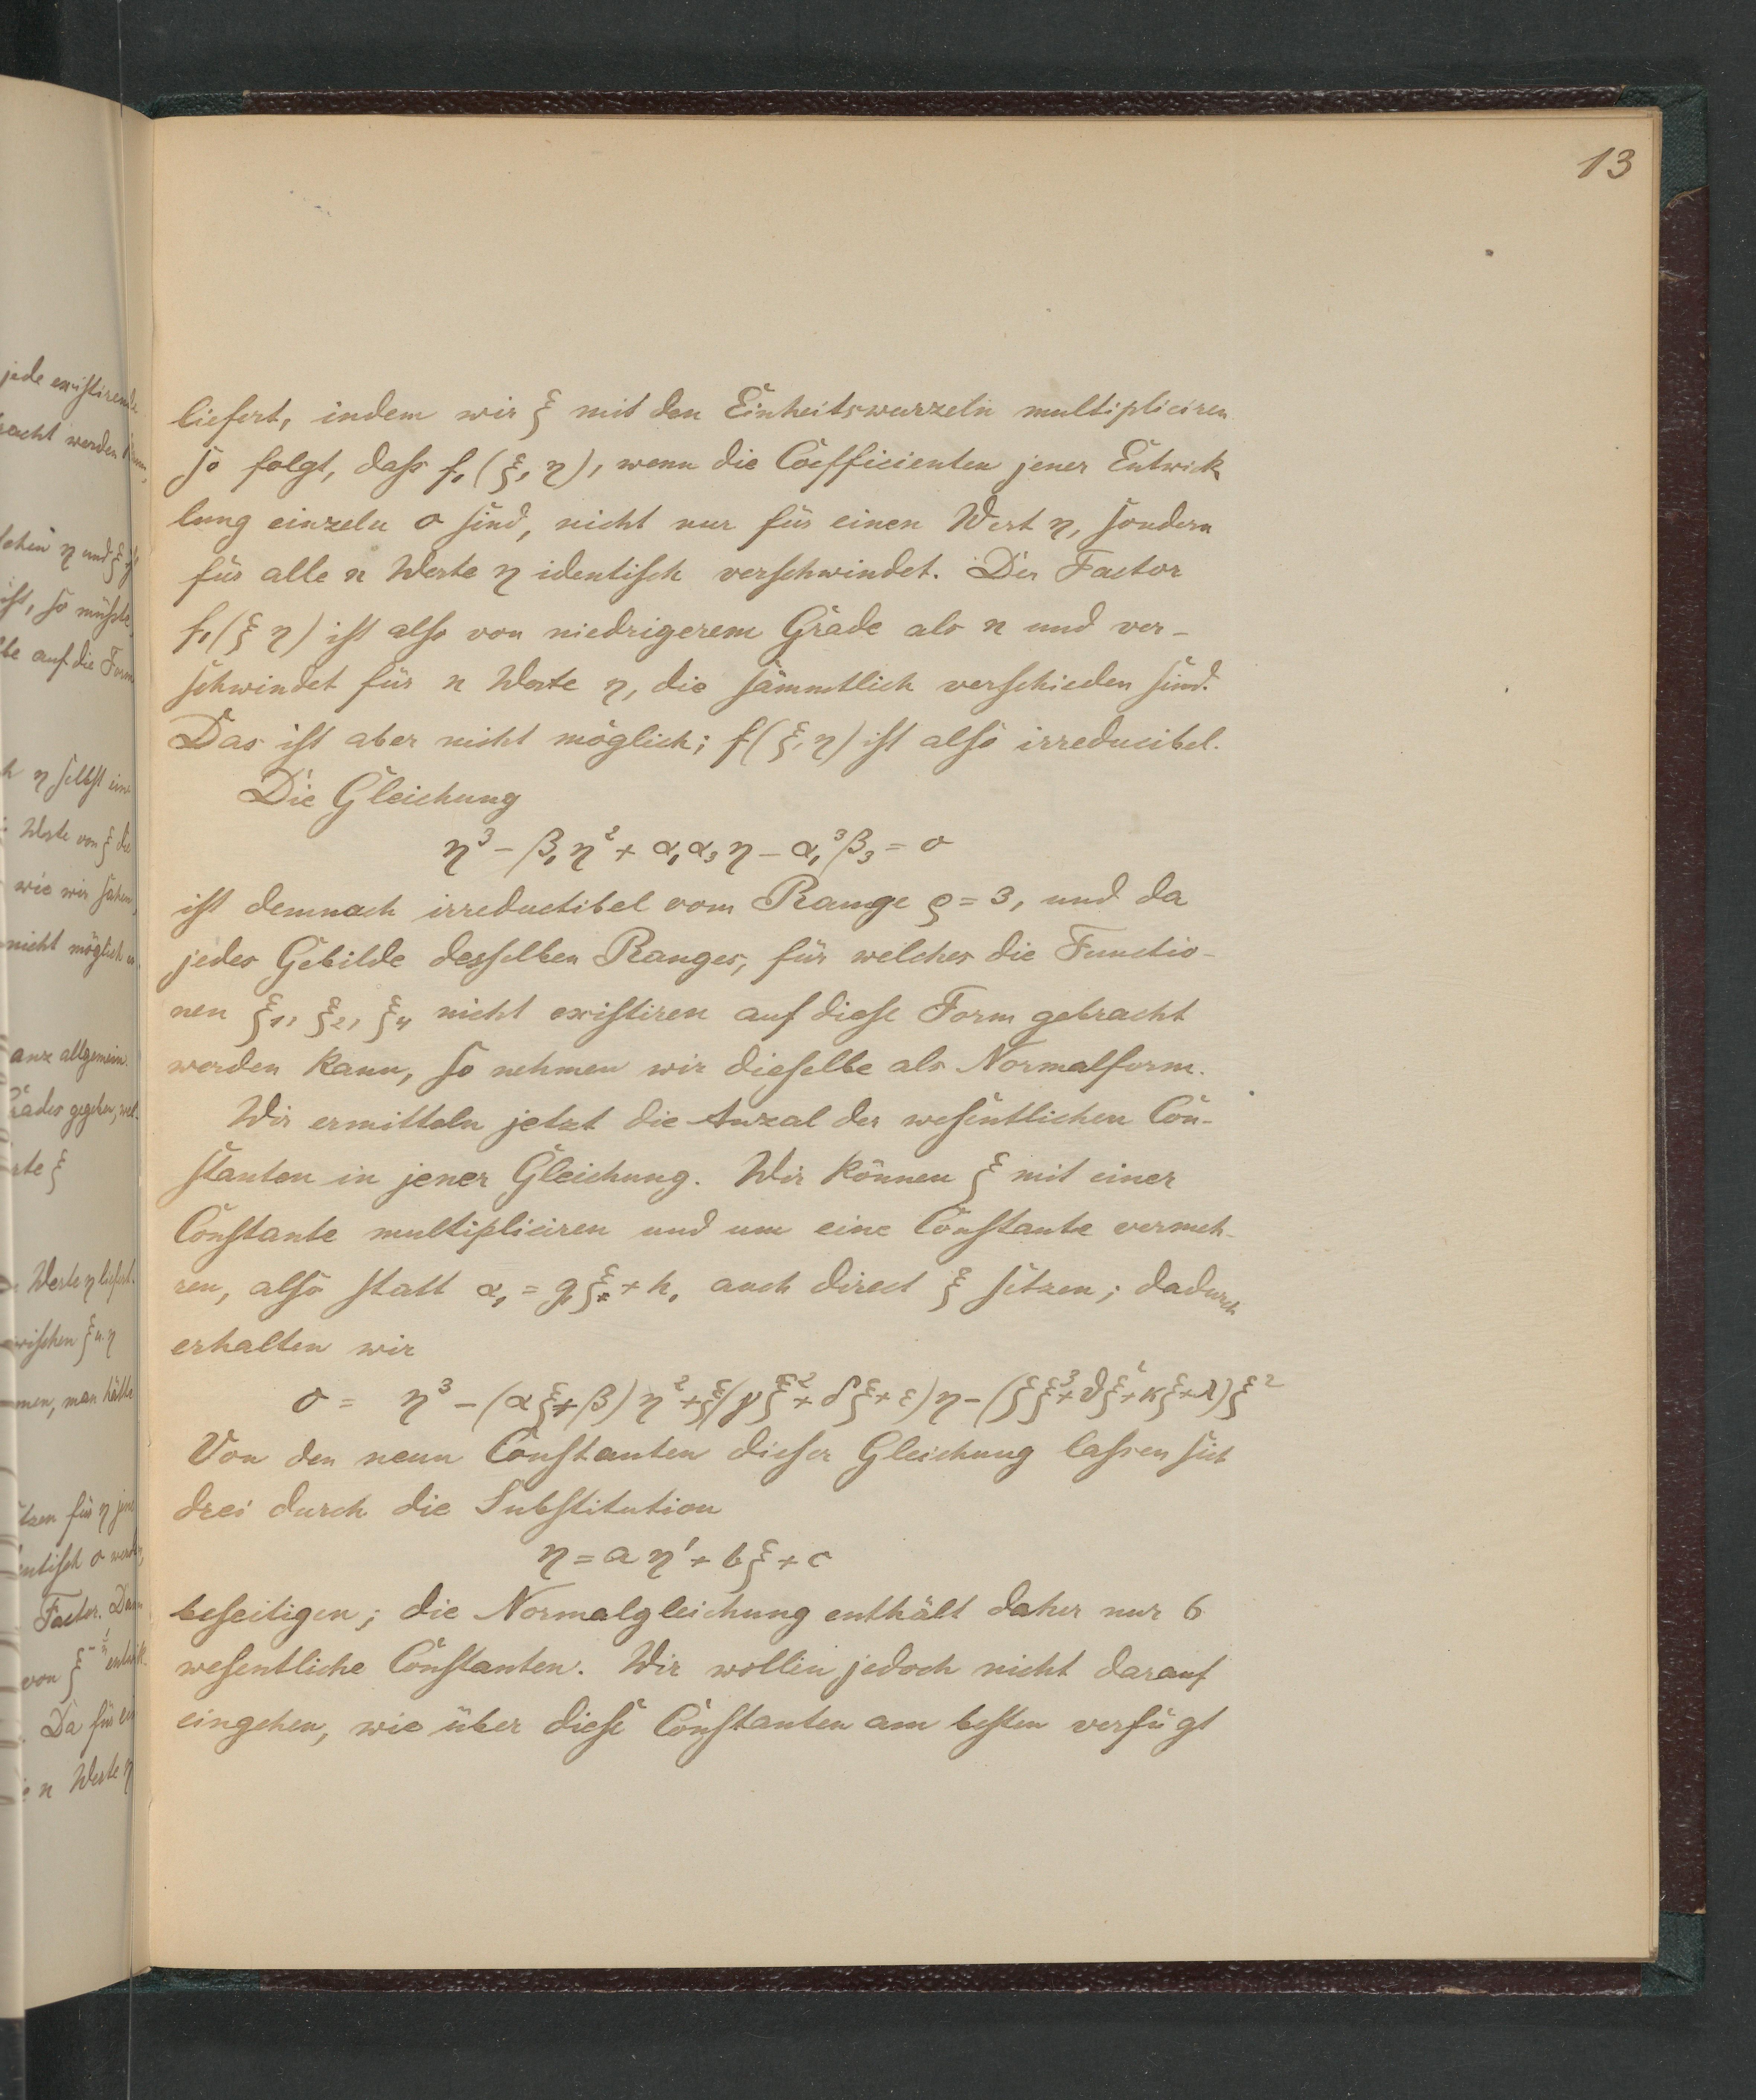 13
jede existirende
racht werden kann,
ist, so müsste
lbe auf die Form
h η selbst eine
Werte von ξ die
wie wir sahen,
nicht möglich
anz allgemein.
Grades gegeben, wel-
rte ξ
Werte η liefert.
zwischen ξ u. η
men, man hätte
tzen für η jene
entisch 0 werden,
Factor. Dann
von ξ
Da für
n Werte η
liefert, indem wir ξ mit den Einheitswurzeln multipliciren
so folgt, dass f₁(ξ, η), wenn die Coefficienten jener Entwick
lung einzeln 0 sind, nicht nur für einen Wert η, sondern
für alle n Werte η identisch verschwindet. Der Factor
f₁(ξ η) ist also von niedrigerem Grade als n und ver-
schwindet für n Werte η, die sämmtlich verschieden sind.
Das ist aber nicht möglich; f(ξ, η) ist also irreducibel.
Die Gleichung
η³ - β₁η² + α₁α₃η - α₁³β₃ = 0
ist demnach irreductibel vom Range ϱ = 3, und da
jedes Gebilde desselben Ranges, für welches die Functio-
nen ξ₁, ξ₂, ξ₄ nicht existiren auf diese Form gebracht
werden kann, so nehmen wir dieselbe als Normalform.
Wir ermitteln jetzt die Anzal der wesentlichen Con-
stanten in jener Gleichung. Wir können ξ mit einer
Constante multipliciren und um eine Constante vermeh-
ren, also statt α₁ = g₁ξ + h₁ auch direct ξ setzen; dadurch
erhalten wir
0 = η³ - (αξ + β)η² + ξ(γξ² + δξ + ε)η - (ζξ³ + ϑξ² + κξ + λ)ξ²
Von den neun Constanten dieser Gleichung lassen sich
drei durch die Substitution
η = aη' + bξ + c
beseitigen; die Normalgleichung enthält daher nur 6
wesentliche Constanten. Wir wollen jedoch nicht darauf
eingehen, wie über diese Constanten am besten verfügt